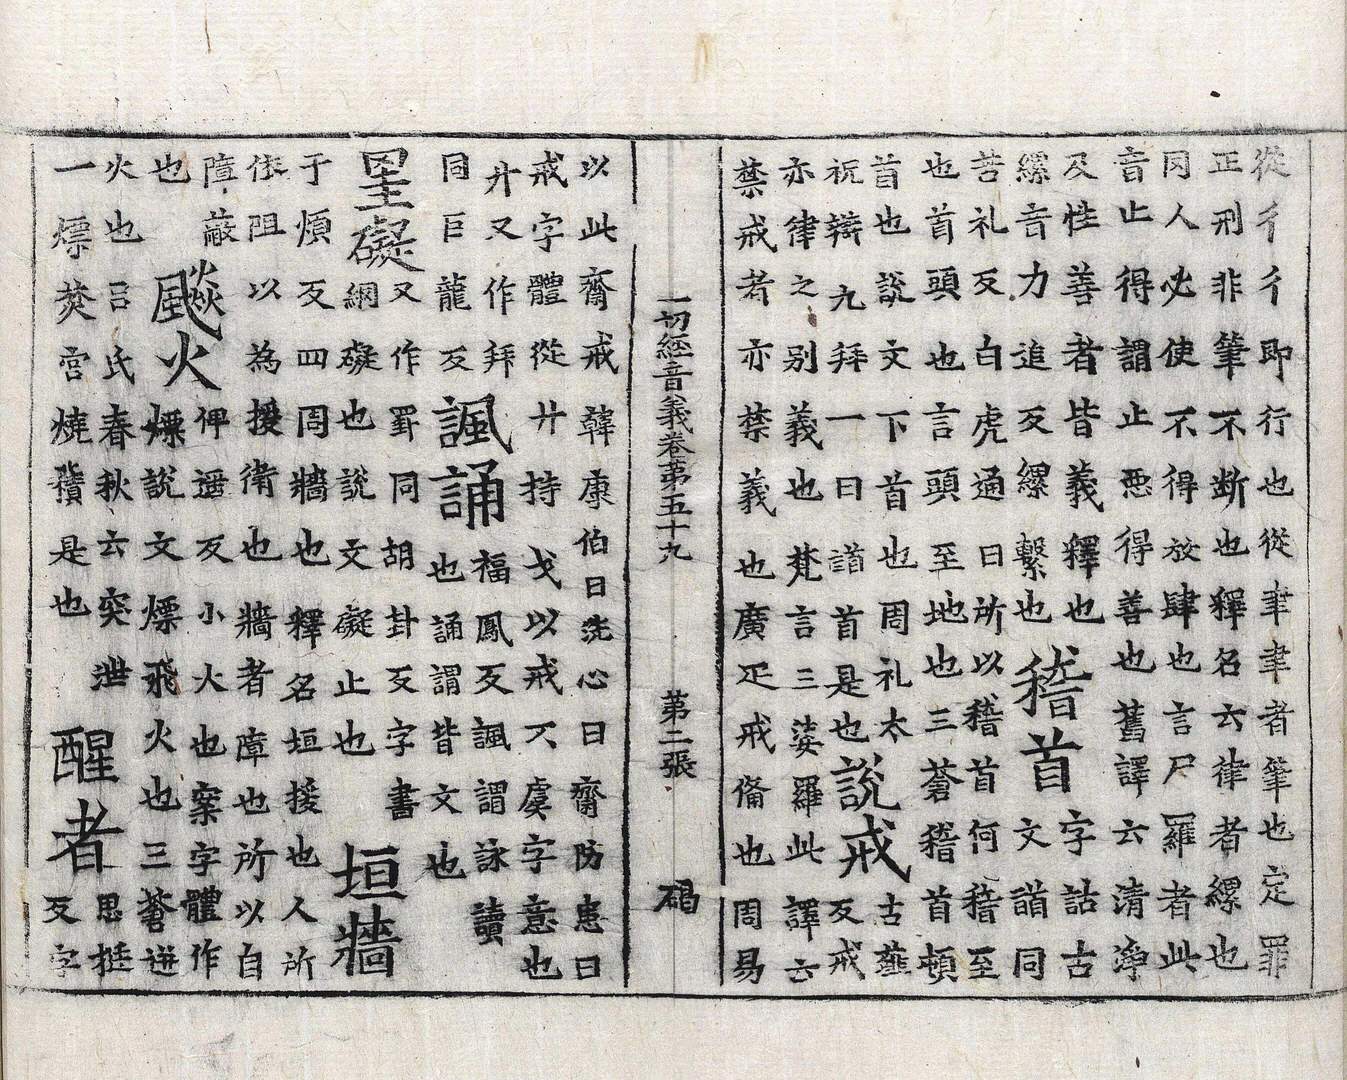 從彳彳即行也從聿聿者筆也定罪
正刑非筆不断也釋名云律者縲也
冈人必使不得放肆也言尸羅者此
音止得謂止悪得善也舊譯云清淨
及性善者皆義釋也 稽首 字詁古
縲音力追反縲繫也 文䭫同
苦礼反白虎通曰所以稽首何稽至
也首頭也言頭至地也三蒼稽首頓
首也說文下首也周礼太 說戒 古薤
祝辯九拜一曰䭫首是也 反戒
亦律之別義也梵言三婆羅此譯云
禁戒者亦禁義也廣疋戒俻也周易
一切經音義卷第五十九 第二張 碣
以此齋戒韓康伯曰洗心曰齋防患曰
戒字體從廾持戈以戒不虞字意也
廾又作拜 諷誦 福鳳反諷謂詠讀
同巨龍反 也誦謂背文也
罣礙 又作罫同胡卦反字書
網礙也說文礙止也 垣牆
于煩反四周牆也釋名垣援也人所
依阻以為援衛也牆者障也所以自
障蔽 飈火 俾遥反小火也案字體作
也 熛說文熛飛火也三蒼迸
火也吕氏春秋云突泄 醒者 思挺
一熛焚宫燒積是也 反字